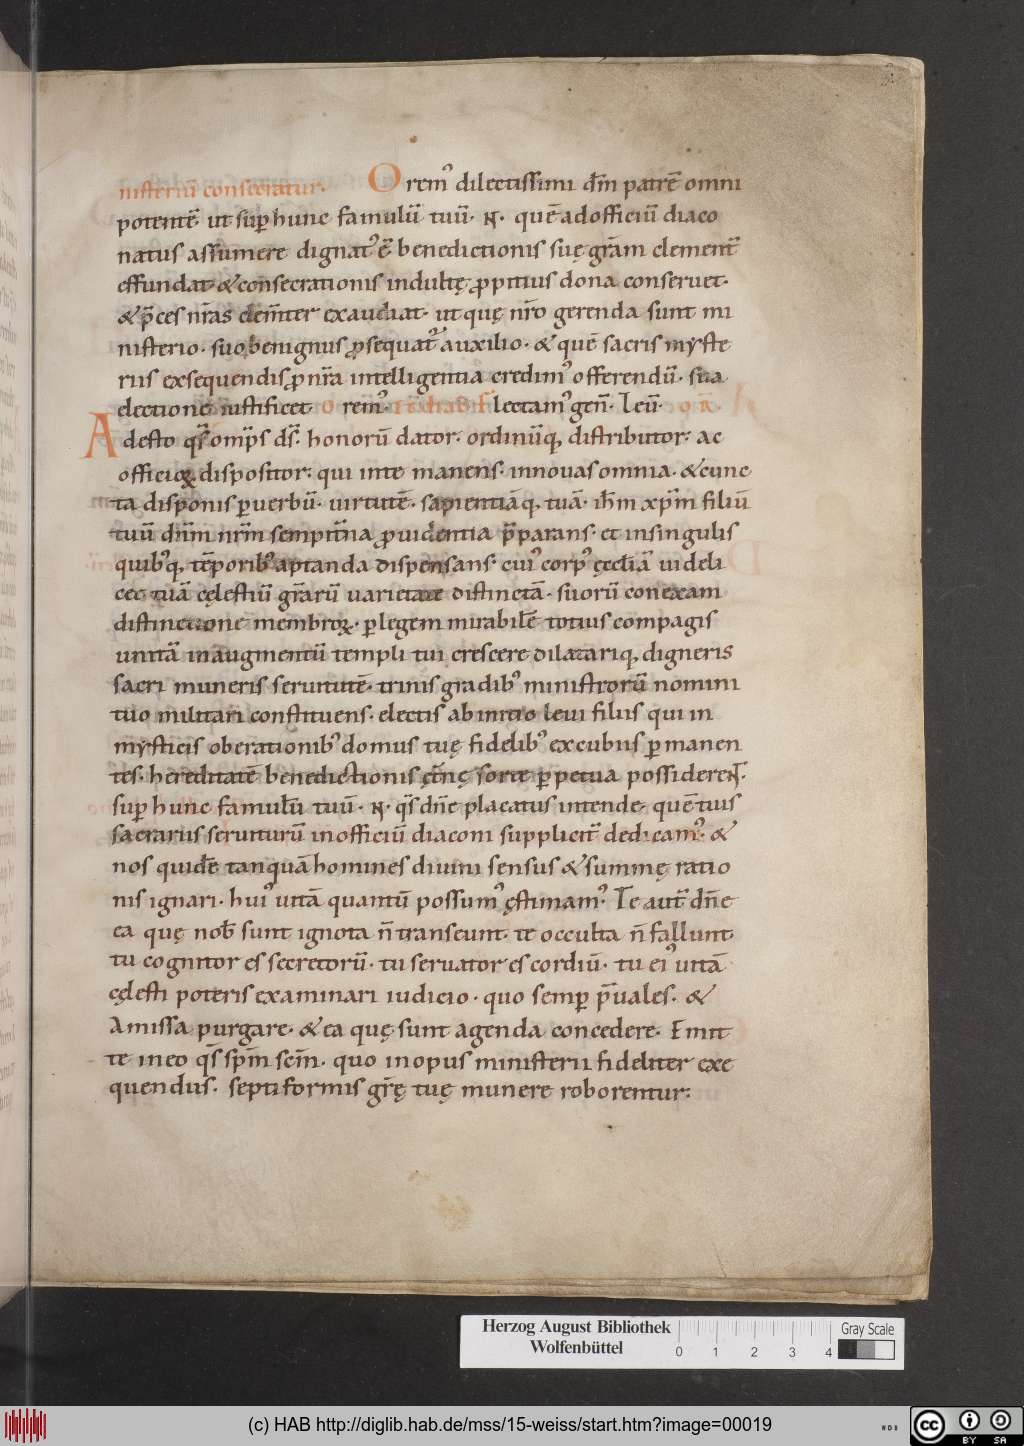 2
nisteriū consecratur. Orem᾽ dilectissimi dm̄ patrē omni
potentē ut sup̱ hunc famulū tuū· N· quē ad officiū diaco
natus assumere dignat᾽ ē benedictionis suę gr̄am clement̄
effundat & consecrationis indultę ꝓpitius dona conseruet·
& p̄ces nr̄as clem̄ter exaudiat· ut quę nr̄o gerenda sunt mi
nisterio· suo benignus ꝓsequat᾽ auxilio· & quē sacris myste
riis exsequendis ꝓ nr̄a intelligentia credim᾽ offerendū· sua
electione iustificet orem᾽· lectam᾽ gen̄· Leū
Adesto qs̄ omp̄s ds̄· honorū dator· ordinūq; distributor· ac
officioꝝ dispositor· qui inte manens· innouas omnia· & cunc
ta disponis ꝑ uerbū· uirtutē· sapientiāq; tuā· ih̄m xp̄m filiū
tuū dn̄m nr̄m sempit̄na ꝓuidentia p̄parans· et insingulis
quib᾽q; tēporib᾽ aptanda dispensans· cui᾽ corp᾽ ęccl̄iā uideli
cec tuā cęlestiū gr̄arū uarietate distinctā· suorū conexam
distinctione membroꝝ· ꝑ legem mirabilē totius compagis
unitā in augmentū templi tui crescere dilatariq; digneris
sacri muneris seruitutē· trinis gradib᾽ ministrorū nomini
tuo militari constituens· electis ab initio leui filiis qui in
mysticis oberationib᾽ domus tuę fidelib᾽ excubiis ꝑmanen
tes· hereditatē benedictionis ęt̄nę sorte ꝑpetua possiderent·
sup̱ hunc famulū tuū· N· qs̄ dn̄e placatus intende· quē tuis
sacrariis seruiturū in officiū diaconi supplicit̄ dedicam᾽· &
nos quidē tanquā homines diuini sensus & summę ratio
nis ignari· hui᾽ uitā quantū possum᾽ ęstimam᾽· Te aut̄ dn̄e
ea quę nob̄ sunt ignota n̄ transeunt· te occulta n̄ fallunt·
tu cognitor es secretorū· tu seruator es cordiū· tu ei᾽ uitā
cęlesti poteris examinari iudicio· quo semꝑ p̄uales· &
Amissa purgare· & ea quę sunt agenda concedere· Emit
te in eo qs̄ sp̄m sc̄m· quo in opus ministerii fideliter exe
quendus· septiformis gr̄ę tuę munere roborentur·
Herzog August Bibliothek
Wolfenbüttel
0 1 2 3 4
Gray Scale
(c) HAB http://diglib.hab.de/mss/15-weiss/start.htm?image=00019
cc BY SA